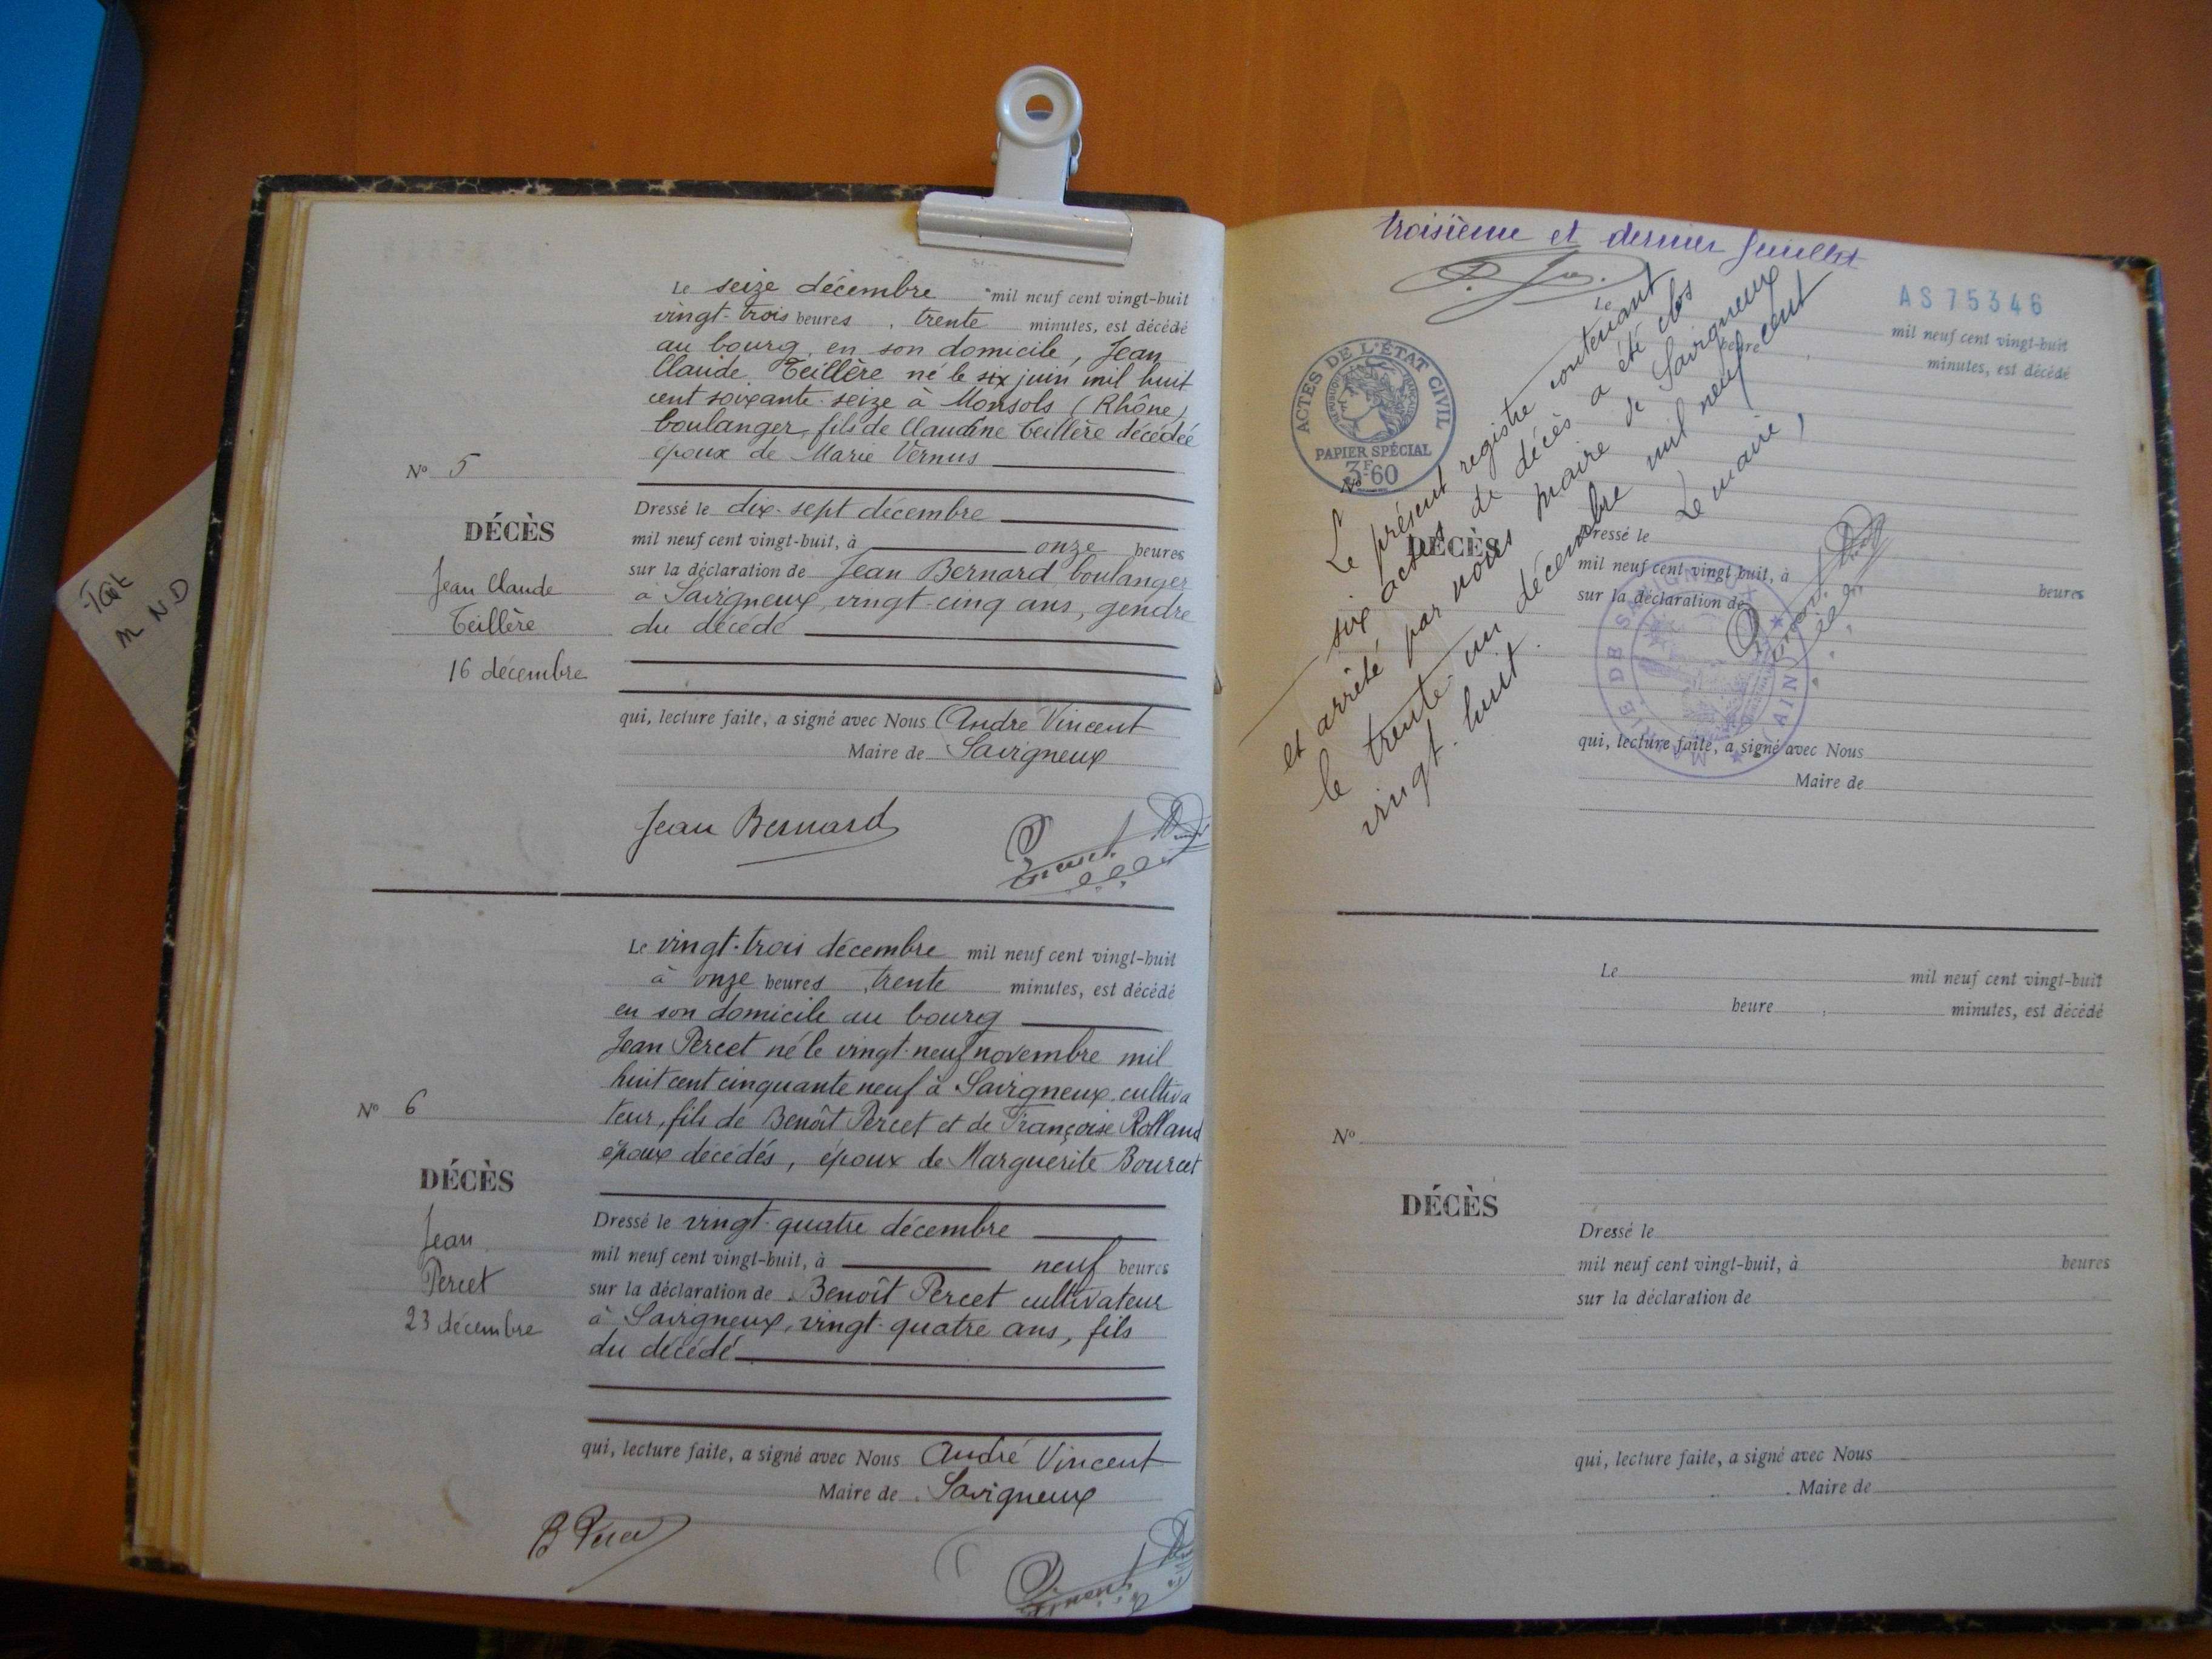 Le seize décembre mil neuf cent vingt-huit
vingt-trois heures, trente minutes, est décédé
au bourg, en son domicile, Jean
Claude Teillère né le six juin mil huit
cent soixante-seize à Monsols (Rhône)
boulanger, fils de Claudine Teillère décédée
époux de Marie Vernus
N° 5
DÉCÈS
Jean Claude
Teillère
16 décembre
Dressé le dix-sept décembre
mil neuf cent vingt-huit, à onze heures
sur la déclaration de Jean Bernard boulanger
à Savigneux, vingt-cinq ans, gendre
du décédé
qui, lecture faite, a signé avec Nous André Vincent
Maire de Savigneux
Jean Bernard
Le vingt-trois décembre mil neuf cent vingt-huit
à onze heures, trente minutes, est décédé
en son domicile au bourg
Jean Percet né le vingt-neuf novembre mil
huit cent cinquante neuf à Savigneux, cultiva
teur, fils de Benoît Percet et de Françoise Rolland
époux décédés, époux de Marguerite Bourcet
N° 6
DÉCÈS
Jean
Percet
23 décembre
Dressé le vingt-quatre décembre
mil neuf cent vingt-huit, à neuf heures
sur la déclaration de Benoît Percet cultivateur
à Savigneux, vingt-quatre ans, fils
du décédé
qui, lecture faite, a signé avec Nous André Vincent
Maire de Savigneux
B Percet
Tait
M N D
troisième et dernier feuillet
AS 75346
ACTES DE L'ÉTAT CIVIL
RÉPUBLIQUE FRANÇAISE
PAPIER SPÉCIAL
3F60
Le présent registre contenant
six actes de décès a été clos
et arrêté par nous maire de Savigneux
le trente-un décembre mil neuf cent
vingt-huit.
Le maire,
Le
mil neuf cent vingt-huit
heure ,
minutes, est décédé
N°
DÉCÈS
Dressé le
mil neuf cent vingt-huit, à
heures
sur la déclaration de
MAIRIE DE SAVIGNEUX
(AIN)
qui, lecture faite, a signé avec Nous
Maire de
Le mil neuf cent vingt-huit
heure , minutes, est décédé
N°
DÉCÈS
Dressé le
mil neuf cent vingt-huit, à heures
sur la déclaration de
qui, lecture faite, a signé avec Nous
Maire de